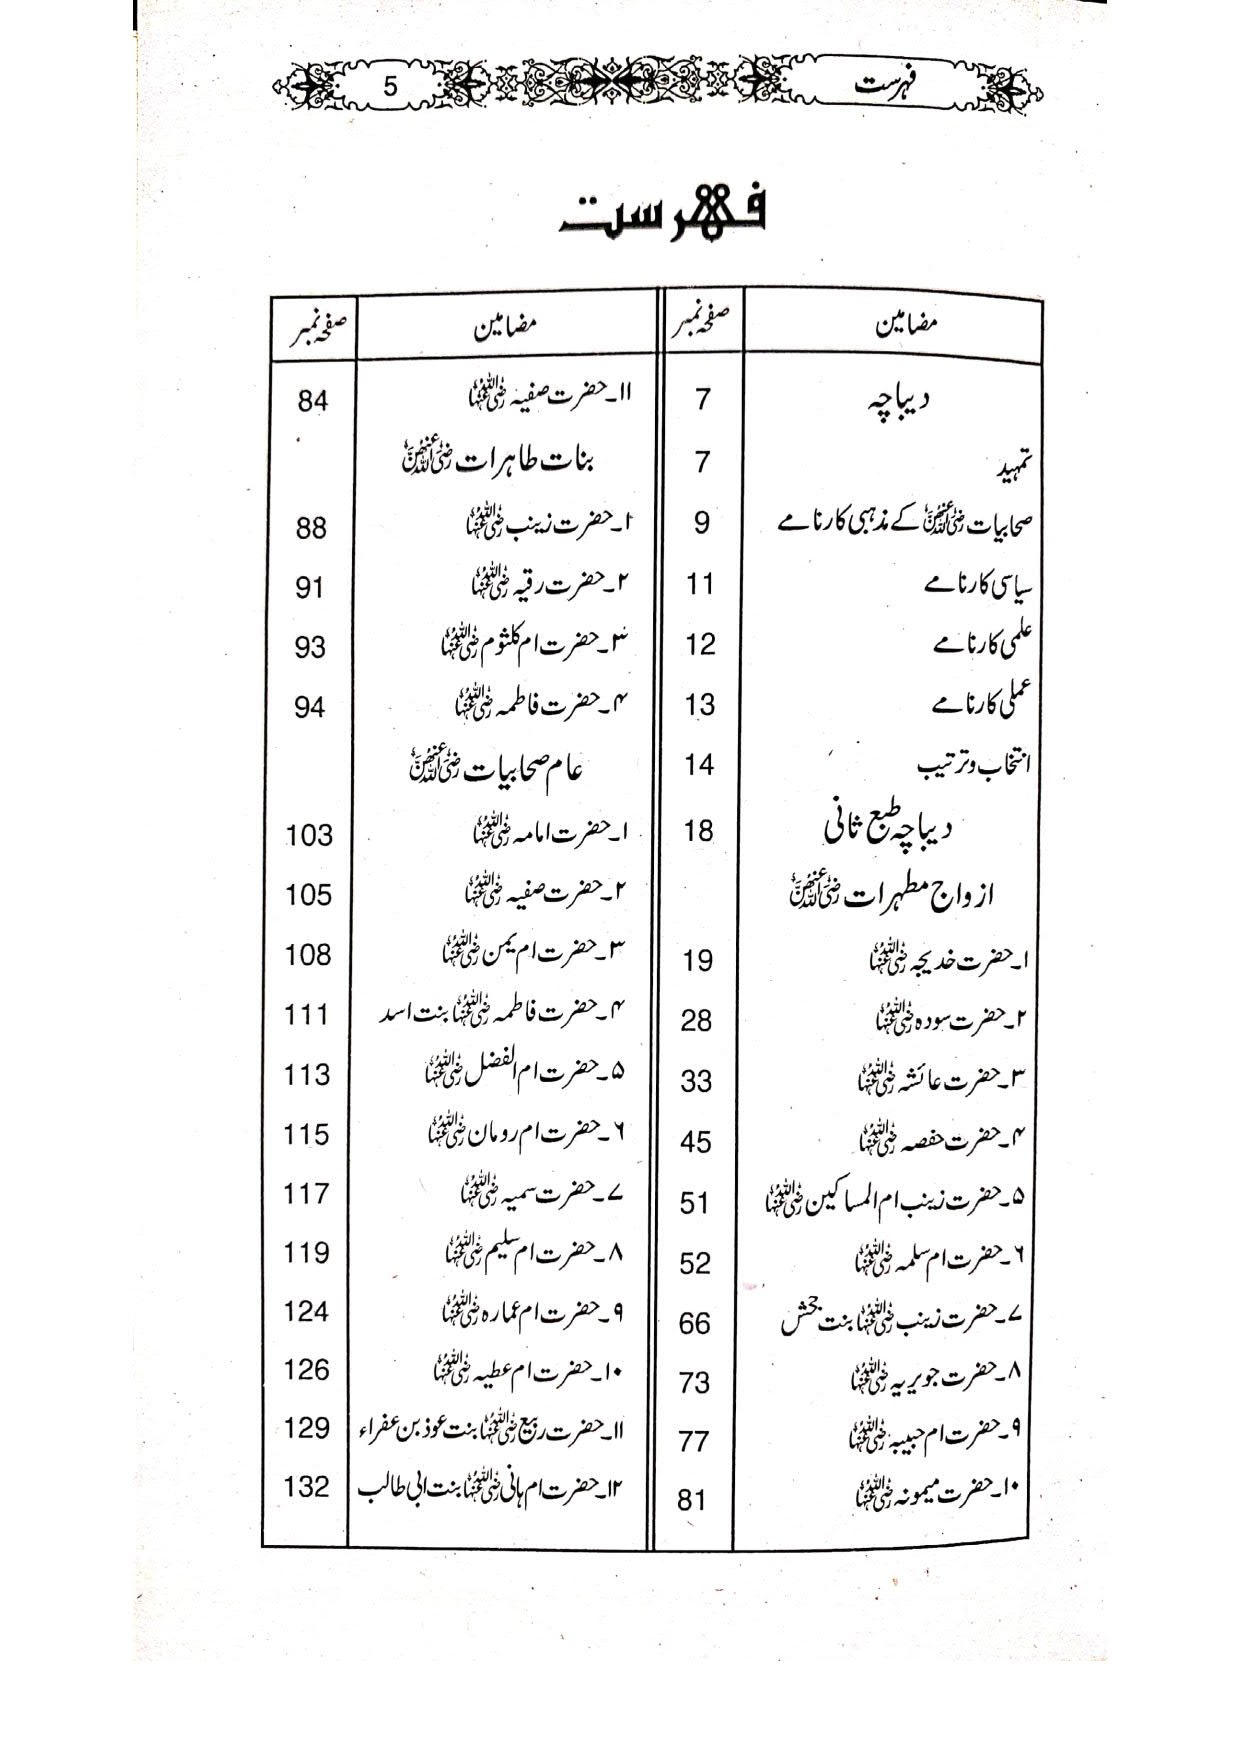 فہرست 5
فہرست
مضامین صفحہ نمبر
دیباچہ 7
تمہید 7
صحابیات رضی اللہ عنہن کے مذہبی کارنامے 9
سیاسی کارنامے 11
علمی کارنامے 12
عملی کارنامے 13
انتخاب و ترتیب 14
دیباچہ طبع ثانی 18
ازواج مطہرات رضی اللہ عنہن
۱۔ حضرت خدیجہ رضی اللہ عنہا 19
۲۔ حضرت سودہ رضی اللہ عنہا 28
۳۔ حضرت عائشہ رضی اللہ عنہا 33
۴۔ حضرت حفصہ رضی اللہ عنہا 45
۵۔ حضرت زینب ام المساکین رضی اللہ عنہا 51
۶۔ حضرت ام سلمہ رضی اللہ عنہا 52
۷۔ حضرت زینب رضی اللہ عنہا بنت جحش 66
۸۔ حضرت جویریہ رضی اللہ عنہا 73
۹۔ حضرت ام حبیبہ رضی اللہ عنہا 77
۱۰۔ حضرت میمونہ رضی اللہ عنہا 81
مضامین صفحہ نمبر
۱۱۔ حضرت صفیہ رضی اللہ عنہا 84
بنات طاہرات رضی اللہ عنہن
۱۔ حضرت زینب رضی اللہ عنہا 88
۲۔ حضرت رقیہ رضی اللہ عنہا 91
۳۔ حضرت ام کلثوم رضی اللہ عنہا 93
۴۔ حضرت فاطمہ رضی اللہ عنہا 94
عام صحابیات رضی اللہ عنہن
۱۔ حضرت امامہ رضی اللہ عنہا 103
۲۔ حضرت صفیہ رضی اللہ عنہا 105
۳۔ حضرت ام یمن رضی اللہ عنہا 108
۴۔ حضرت فاطمہ رضی اللہ عنہا بنت اسد 111
۵۔ حضرت ام الفضل رضی اللہ عنہا 113
۶۔ حضرت ام رومان رضی اللہ عنہا 115
۷۔ حضرت سمیہ رضی اللہ عنہا 117
۸۔ حضرت ام سلیم رضی اللہ عنہا 119
۹۔ حضرت ام عمارہ رضی اللہ عنہا 124
۱۰۔ حضرت ام عطیہ رضی اللہ عنہا 126
۱۱۔ حضرت ربیع رضی اللہ عنہا بنت عوذ بن عفراء 129
۱۲۔ حضرت ام ہانی رضی اللہ عنہا بنت ابی طالب 132